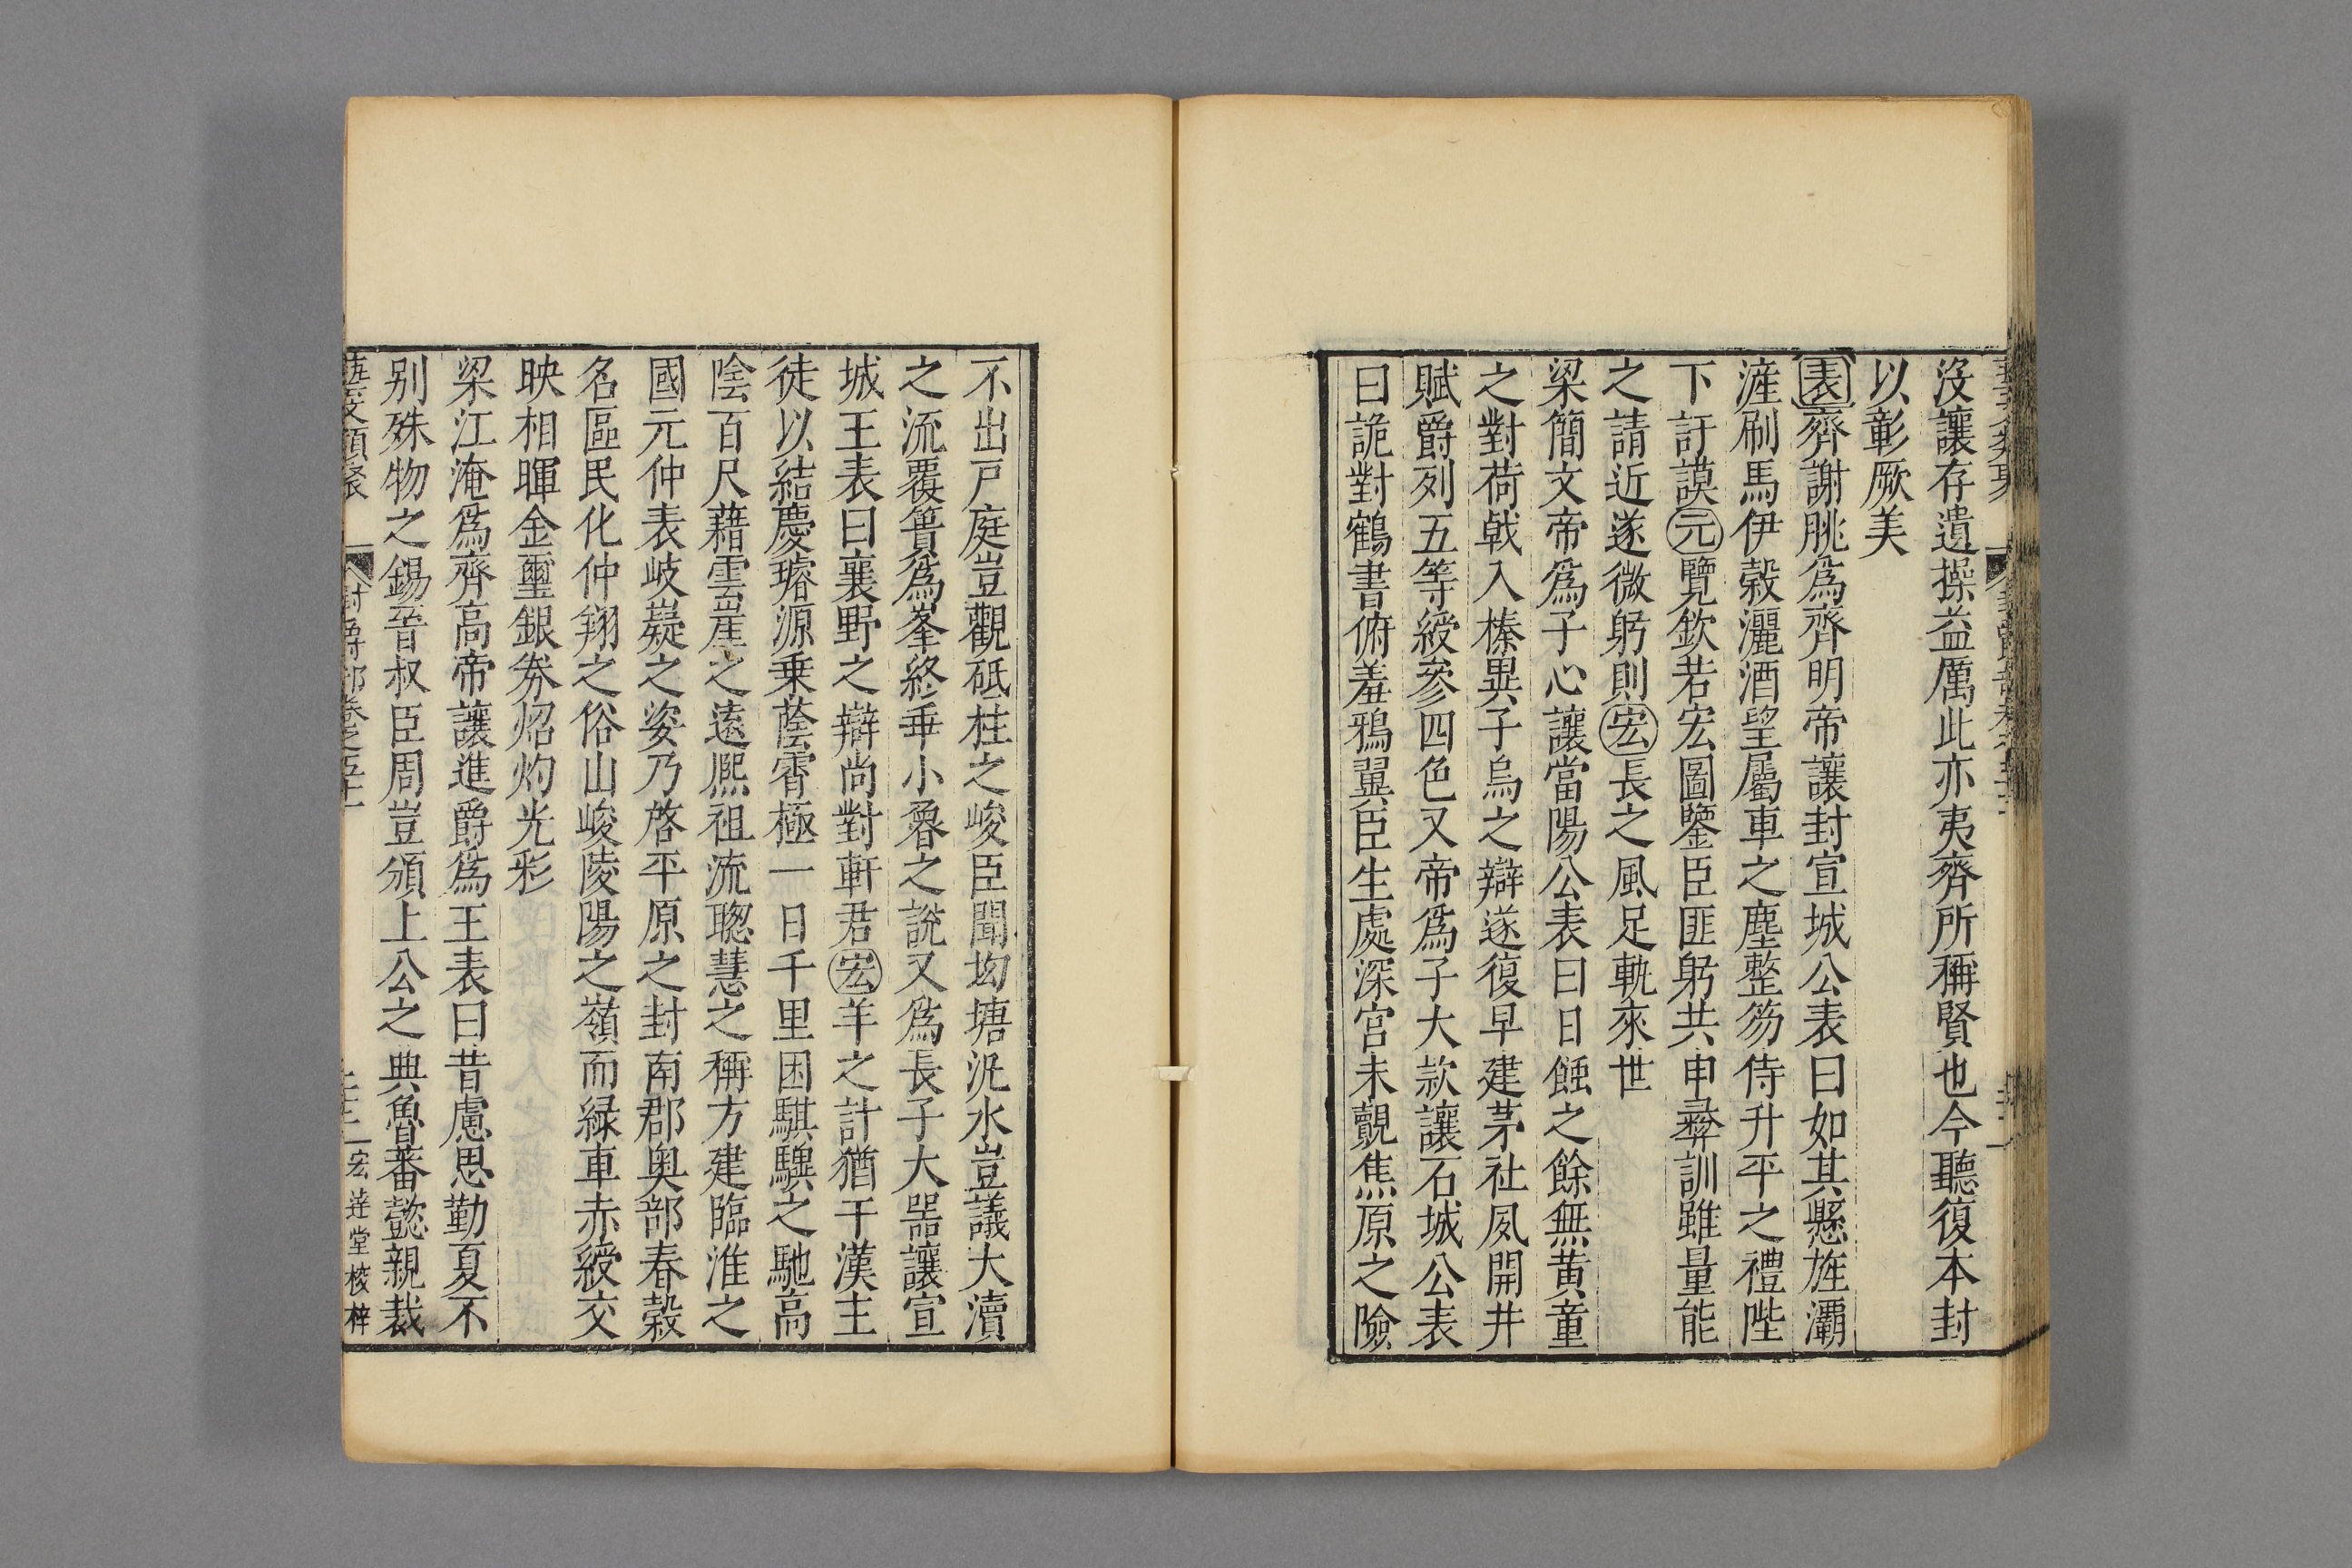 沒讓存遺操益厲此亦夷齊所稱賢也今聽復本封
以彰厥美
表齊謝朓爲齊明帝讓封宣城公表曰如其懸旌灞
滻刷馬伊穀灑酒望屬車之塵整笏侍升平之禮陛
下訏謨元覽欽若宏圖鑒臣匪躬共申彝訓雖量能
之請近遂微躬則宏長之風足軌來世
梁簡文帝爲子心讓當陽公表曰日蝕之餘無黃童
之對荷戟入榛異子烏之辯遂復早建茅社夙開井
賦爵列五等綬參四色又帝爲子大款讓石城公表
曰詭對鶴書俯羞鴉翼臣生處深宮未覿焦原之險
不出戸庭豈觀砥柱之峻臣聞坳塘汎水豈議大瀆
之流覆簣爲峯終乖小魯之說又爲長子大噐讓宣
城王表曰襄野之辯尚對軒君宏羊之計猶干漢主
徒以結慶璿源乗蔭霄極一日千里困騏驥之馳高
陰百尺藉雲崖之遠熈祖流聰慧之稱方建臨淮之
國元仲表岐嶷之姿乃啓平原之封南郡奧部春穀
名區民化仲翔之俗山峻陵陽之嶺而緑車赤綬交
映相暉金璽銀劵炤灼光彩
梁江淹爲齊高帝讓進爵爲王表曰昔慮思勤夏不
别殊物之錫晉叔臣周豈頒上公之典魯蕃懿親裁
藝文類聚 封爵部卷之五十一 宏達堂校梓